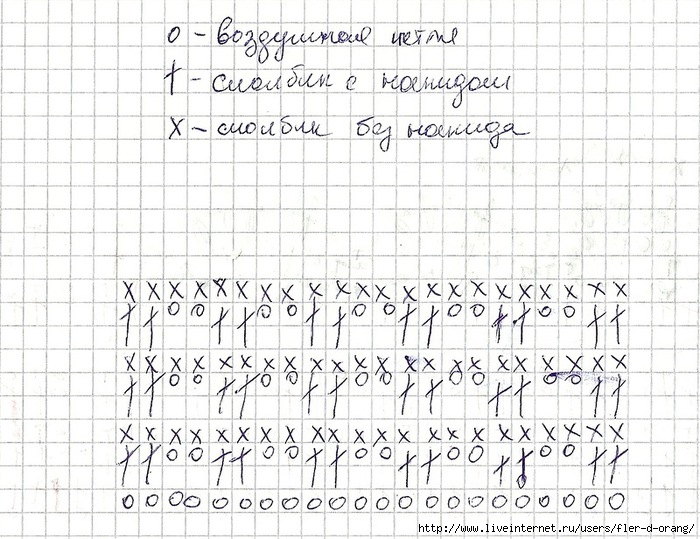 o - воздушная петля
† - столбик с накидом
x - столбик без накида
http://www.liveinternet.ru/users/fler-d-orang/